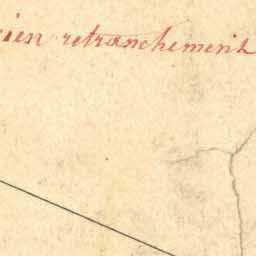 cien retranchement